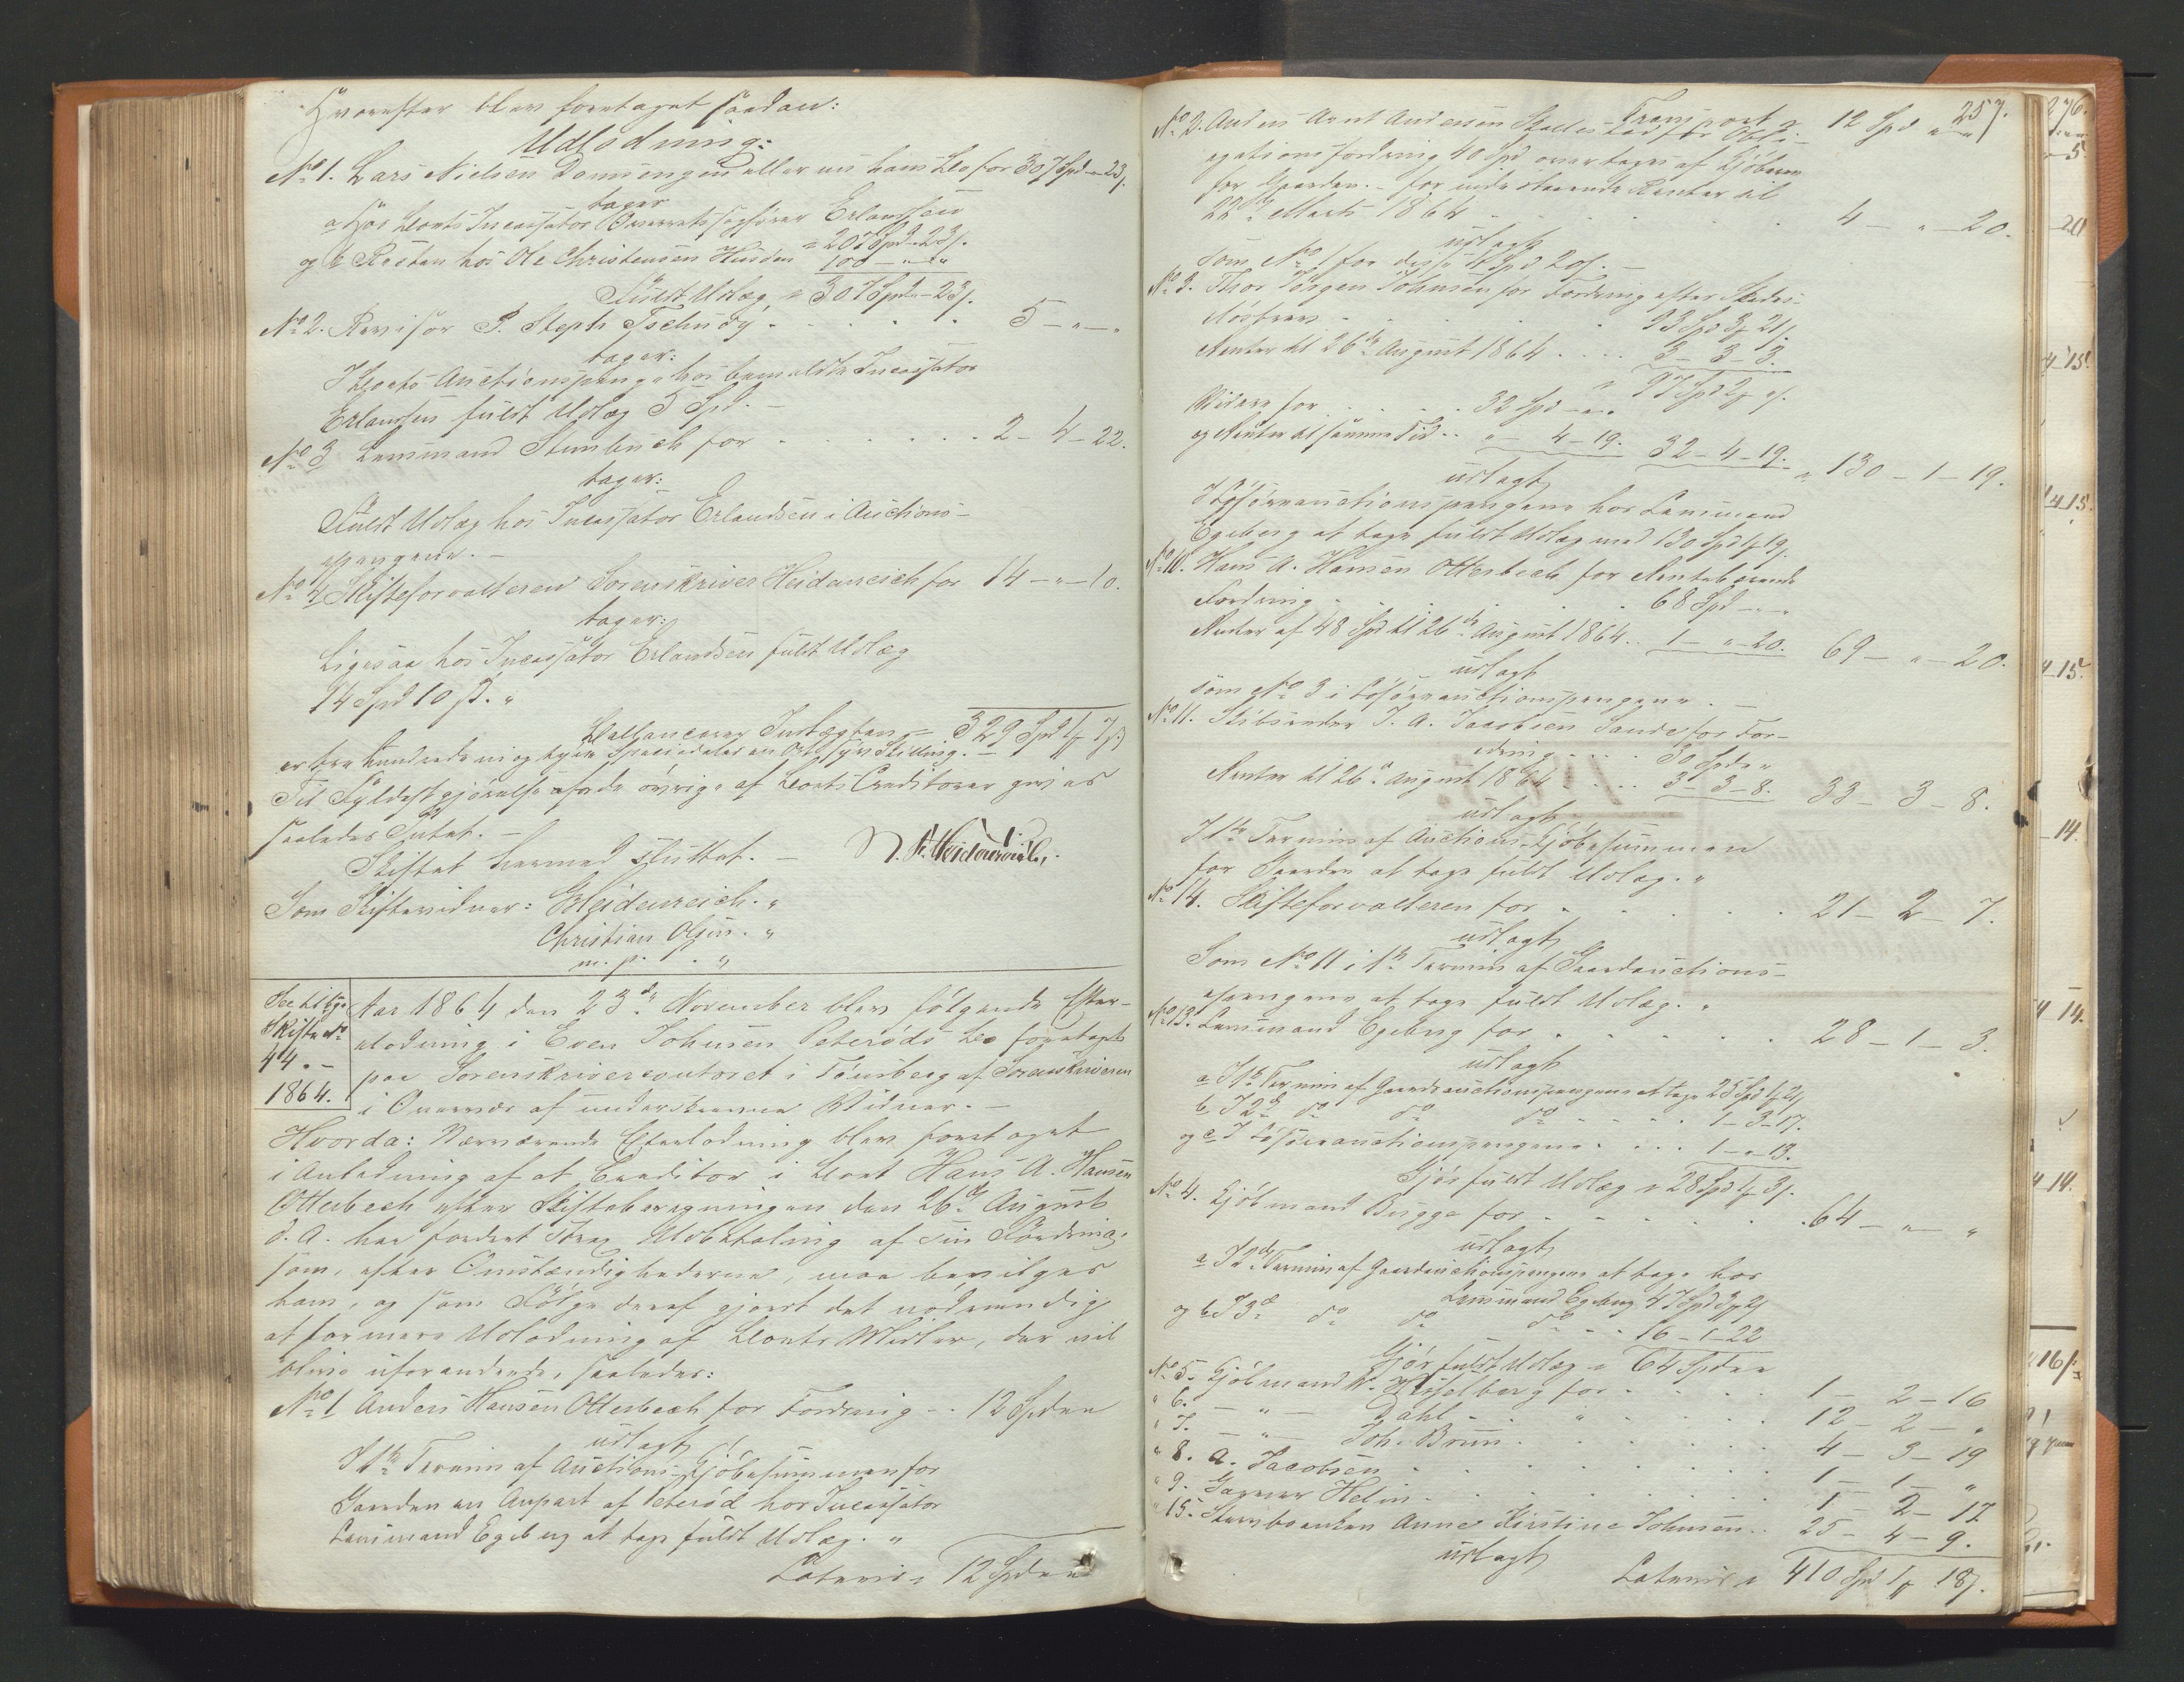 Hvorefter blev foretaget saadan:
Udlodning:
No 1. Lars Nielsen Donningen eller nu hans Bo for 307 Spd - " - 23 s.
tager
a Hos Boets Incassator Overretssagfører Erlandsen
= 207 Spd " 23 s.
og b Resten hos Ole Christensen Husøen 100 - " - "
Fuldt Udlæg = 307 Spd " - 23 s.
No 2. Revisor P. Steph Tschudy . . . . . 5 - " - "
tager:
I Boets Auctionspenge hos bemeldte Incassator
Erlandsen fuldt Udlæg 5 Spd. -
No 3 Lensmand Stenbuch for . . . . . . 2 - 4 - 22.
tager:
Fuldt Udlæg hos Incassator Erlandsen i Auctions-
pengene. -
No 4 Skifteforvalteren Sorenskriver Heidenreich for 14 - " - 10.
tager:
Ligesaa hos Incassator Erlandsen fuldt Udlæg
14 Spd 10 s. "
Ballancerer Indtægten = 329 Spd 1 # 7 s.
er tre hundrede ni og tyve Speciedaler en Ort syv Skilling. -
Til Fyldestgjørelse af de øvrige af Boets Creditorer gives
saaledes Intet. -
Skiftet hermed sluttet. - N. F. Heidenreich.
Som Skiftevidner: G Heidenreich. "
Christian Olsen. "
m. p. "
See
Skifte No
44. -
1864.
Aar 1864 den 23de November blev følgende Efter-
udlodning i Even Johnsen Peterøds Bo foretaget
paa Sorenskrivercontoret i Tønsberg af Sorenskriveren
i Overvær af underskrevne Vidner. -
Hvorda: Nærværende Efterlodning blev foretaget
i Anledning af at Creditor i Boet Hans A. Hansen
Otterbech efter Skifteberegningen den 26de August
d. A. har fordret strax Udbetaling af sin Fordring,
som, efter Omstændighederne, maa bevilges
ham, og som Følge deraf gjort det nødvendig
at formere Udlodning af Boets Midler, der vil
blive uforandrede, saaledes:
No 1 Anders Hansen Otterbech for Fordring - - 12 Spd " "
udlagt
I 1ste Termin af Auctions-Kjøbesummen for
Gaarden en Anpart af Peterød hos Incassator
Lensmand Egeberg at tage fuldt Udlæg. "
Lateris = 12 Spd " "
257.
Transport = 12 Spd " "
No 2. Anders Arnt Andersen Skallestad for Obli-
gationsfordring 40 Spd overtages af Kjøberen
for Gaarden. - for indestaaende Renter til
22de Marts 1864 . . . . . 4 - " - 20.
udlagt
som No 1 for disse 4 Spd 20 s. -
No 3. Thor Jørgen Johnsen for Fordring efter Skades-
løsbrev . . . . . 93 Spd 3 # 21 s.
Renter til 26de August 1864 . . . . 3 - 3 - 3.
" 97 Spd 2 # " s.
Videre for . . . . . 32 Spd - " - "
og Renter til samme Tid . . " - 4 - 19. 32 - 4 - 19. = 130 - 1 - 19.
udlagt
I Løsøreauctionspengene hos Lensmand
Egeberg at tage fuldt Udlæg med 130 Spd 1 # 19 s.
No 10. Hans A. Hansen Otterbech for Rentebærende
Fordring . . . . . 68 Spd - " - "
Renter af 48 Spd til 26de August 1864 . . 1 - " - 20. 69 - " - 20.
udlagt
som No 3 i Løsøreauctionspengene. -
No 11. Skibsreder J. A. Jacobsen Sande for For-
dring . . . . 30 Spd " "
Renter til 26de August 1864 . . . . 3 - 3 - 8. 33 - 3 - 8.
udlagt
I 1ste Termin af Auctions-Kjøbesummen
for Gaarden at tage fuldt Udlæg. "
No 14. Skifteforvalteren for . . . . . 21 - 2 - 7.
udlagt
Som No 11 i 1ste Termin af Gaardauctions-
pengene at tage fuldt Udlæg. "
No 13. Lensmand Egeberg for . . . . . 28 - 1 - 3.
udlagt
a I 1ste Termin af Gaardauctionspengene at tage 25 Spd 1 # 21 s
b I 2de do do do . . . . 1 - 3 - 17.
og c I Løsøreauctionspengene . . . . 1 - " - 13.
Gjør fuldt Udlæg = 28 Spd 1 # 3 s.
No 4. Kjøbmand Bugge for . . . . . 64 - " - "
udlagt
a I 2den Termin af Gaardauctionspengene at tage hos
Lensmand Egeberg 47 Spd 3 # 2 s
og b I 3de do do do . . . 16 - 1 - 22
Gjør fuldt Udlæg = 64 Spd " "
No 5. Kjøbmand W. Hesselberg for . . . . 1 - 2 - 16
" 6. - " - Dahl . . " . . . 12 - 2 - "
" 7. - " - Joh. Bruun . . . . . 4 - 3 - 19
" 8. A. Jacobsen . . . . . . 1 - 1 - "
" 9. Garver Helin . . . . . . 1 - 2 - 17
" 15. Stervboenken Anne Kirstine Johnsen . . 25 - 4 - 9.
udlagt
Lateris = 410 Spd 1 # 18 s.